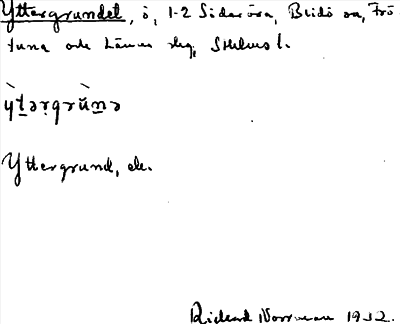 Yttergrundet, ö, 1-2 Sidaröra, Blidö sn, Frö
tuna och Länna slg, Sthlms l.
ỳtərgrùnə
Yttergrund, ek.
Rickard Norrman 1932.